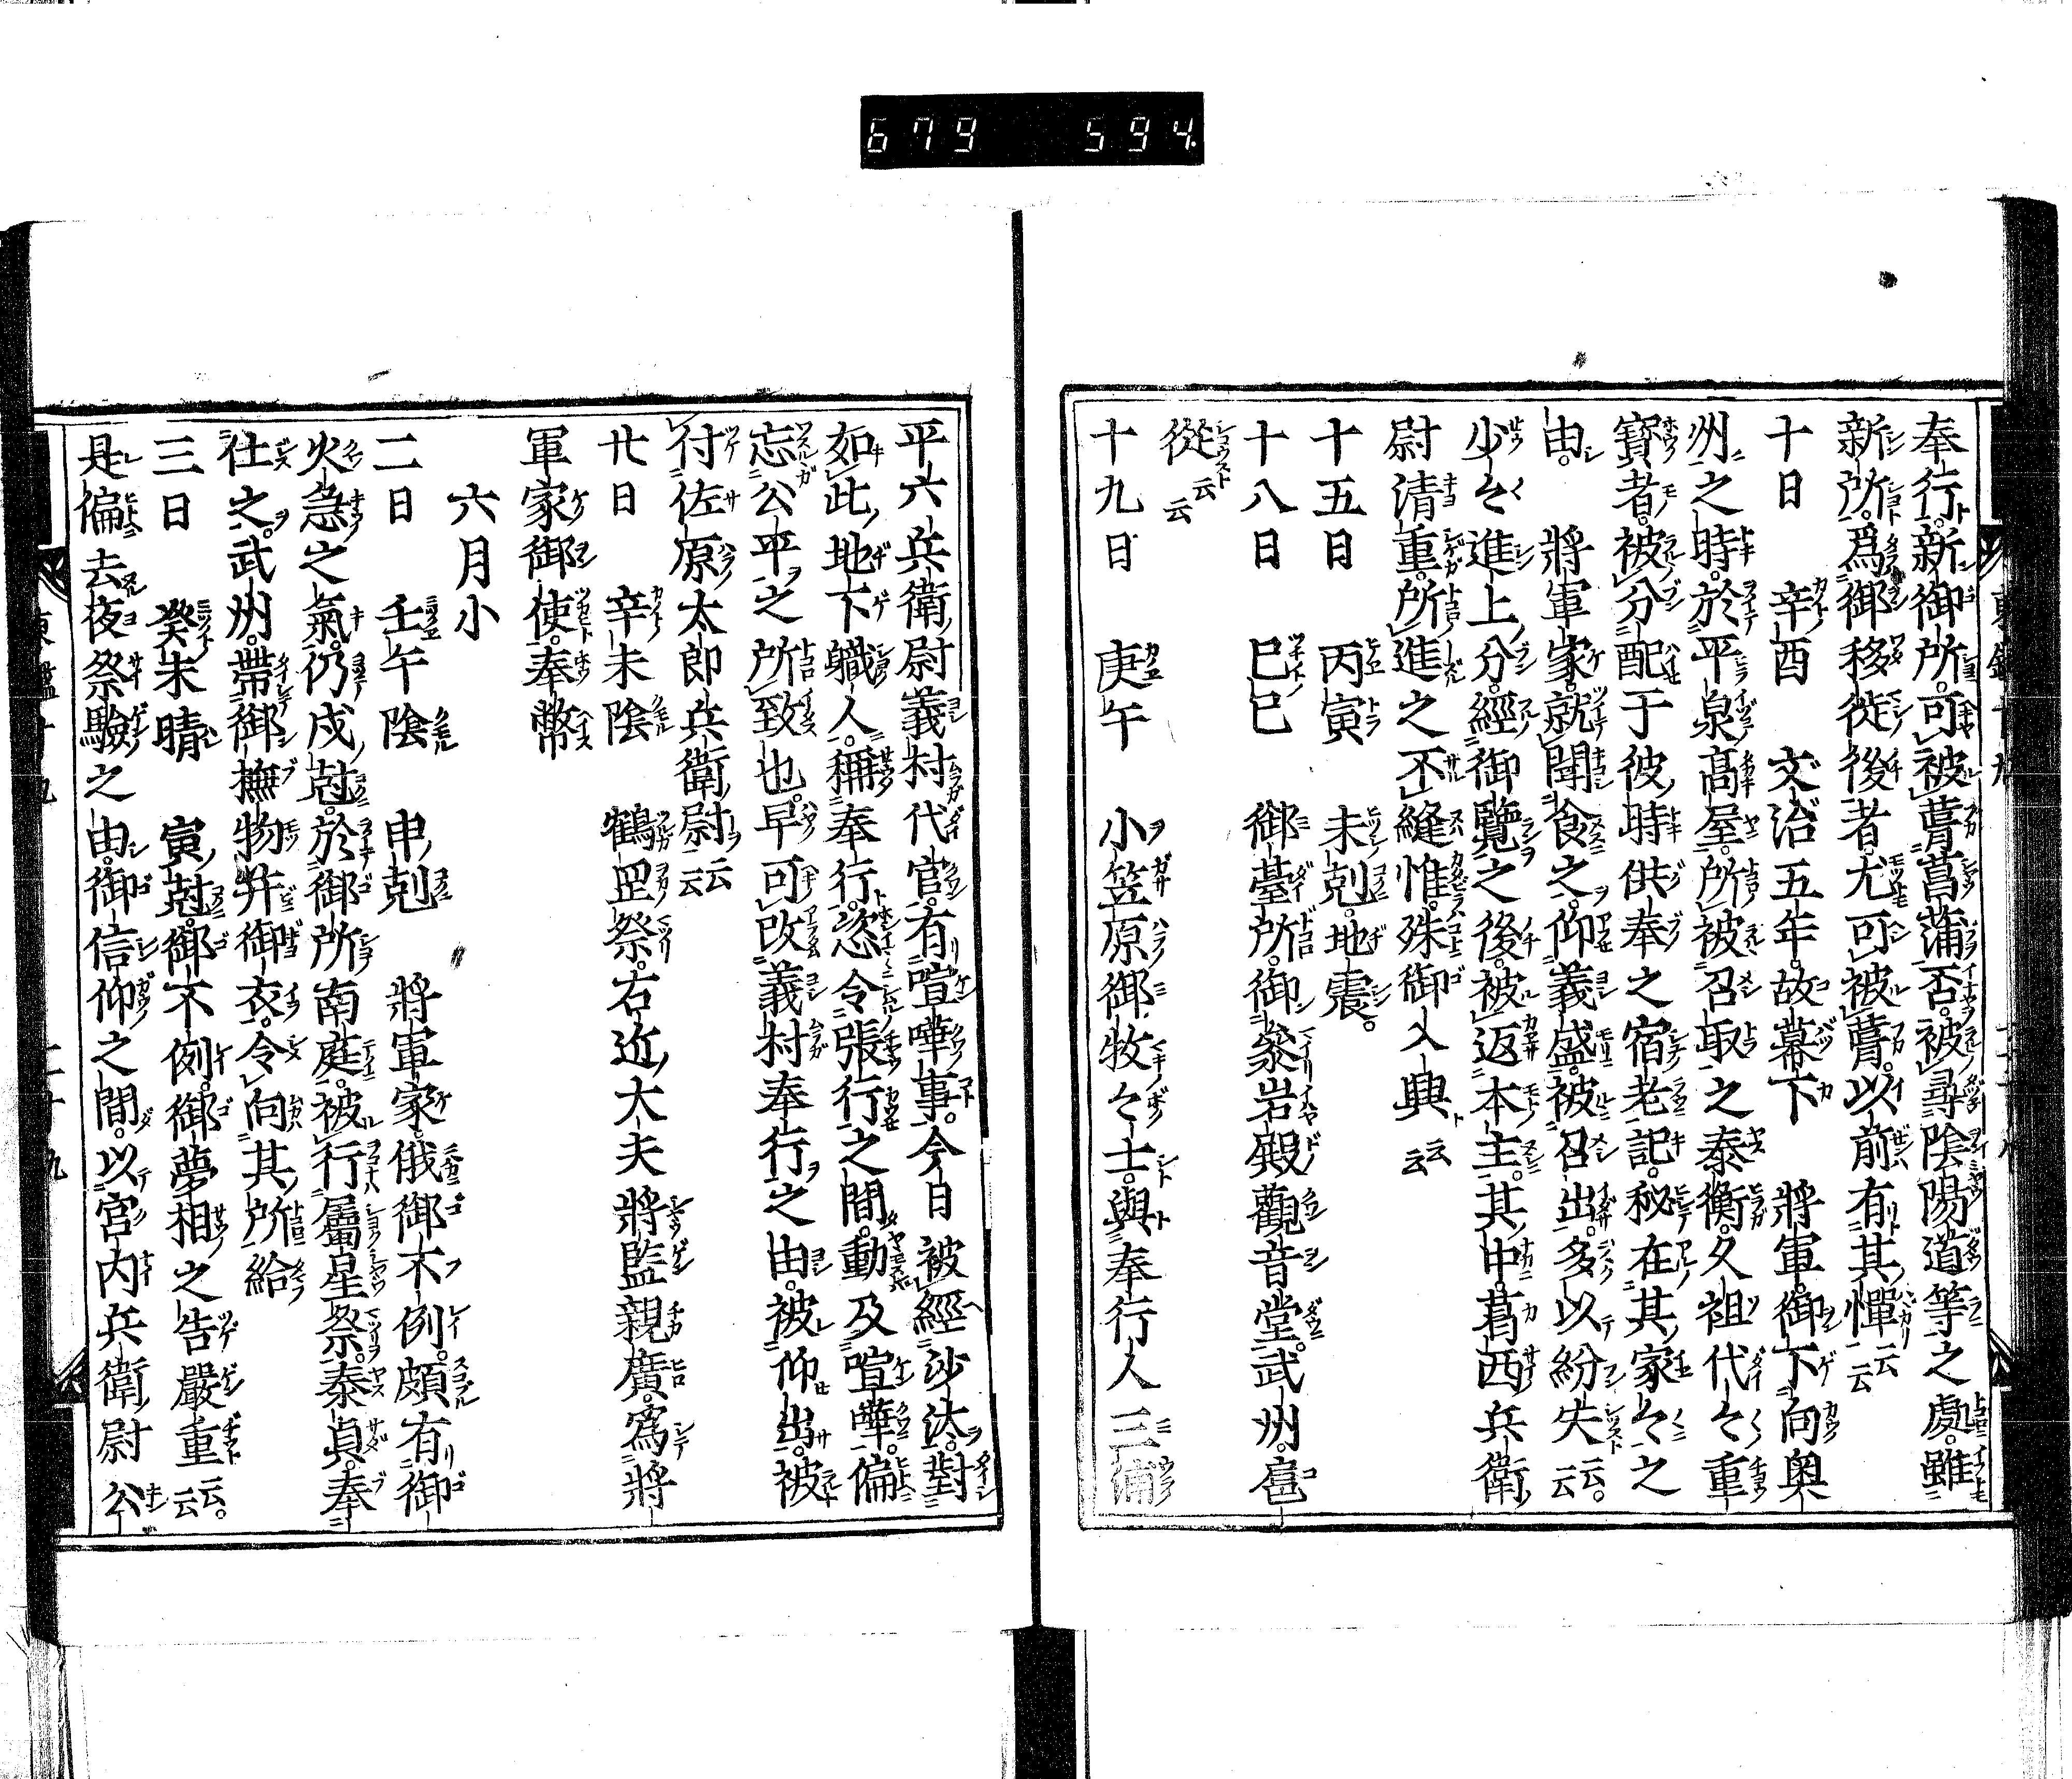 679 594.
奉行。新御所。可被葺菖蒲否。被尋陰陽道等之處。雖
新所。爲御移徙後者。尤可被葺。以前有其憚云云
十日 辛酉 文治五年。故幕下 將軍。御下向奥
州之時。於平泉髙屋。所被召取之泰衡。久祖代々重
寳者。被分配于彼時供奉之宿老記。秘在其家々之
由。 將軍家。就聞食之。仰義盛。被召出。多以紛失云云。
少々進上分。經御覽之後。被返本主。其中葛西兵衛
尉清重。所進之不縫惟。殊御入興云云
十五日 丙寅 未剋。地震。
十八日 己巳 御臺所。御參岩殿觀音堂。武州。扈
從云云
十九日 庚午 小笠原御牧々士。與奉行人三浦
平六兵衛尉義村代官。有喧嘩事。今日被經沙汰。對
如此地下職人。稱奉行。恣令張行之間。動及喧嘩。偏
忘公平之所致也。早可改義村奉行之由。被仰出。被
付佐原太郎兵衛尉云云
廿日 辛未陰 鶴罡祭。右近大夫將監親廣。爲將
軍家御使。奉幣
六月小
二日 壬午陰 申剋 將軍家。俄御不例。頗有御
火急之氣。仍戍尅。於御所南庭。被行屬星祭。泰貞。奉
仕之。武州。帶御撫物并御衣。令向其所給
三日 癸未晴 寅尅。御不例。御夢相之告嚴重云云。
是偏去夜祭驗之由。御信仰之間。以宮内兵衛尉公